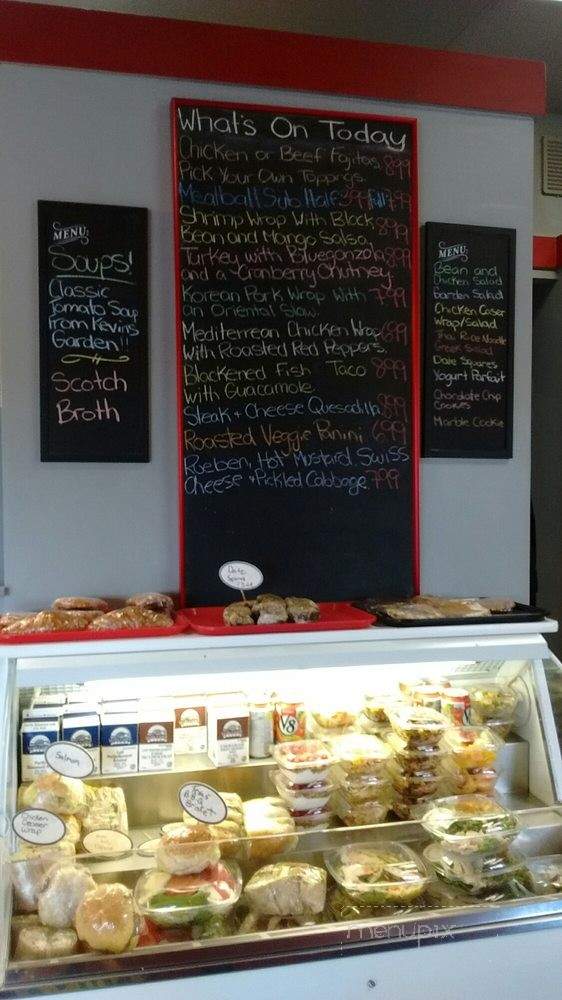 What's On Today
Chicken or Beef Fajitas 8.99
Pick Your Own Toppings.
Meatball Sub Half 3.99 full 7.99
Shrimp Wrap With Black 8.99
Bean and Mango Salsa.
Turkey with Bluegonzola 8.99
and a Cranberry Chutney
Korean Pork Wrap With 7.99
an Oriental Slaw.
Mediterrean Chicken Wrap 6.99
With Roasted Red Peppers.
Blackened Fish Taco 8.99
with Guacamole
Steak + Cheese Quesadilla 8.99
Roasted Veggie Panini 6.99
Rueben, Hot Mustard, Swiss
Cheese + Pickled Cabbage 7.99
MENU:
Soups!
Classic
Tomato Soup
From Kevins
Garden!!
Scotch
Broth
MENU:
Bean and
Chicken Salad
Garden Salad
Chicken Caser
Wrap/Salad
Thai Rice Noodle
Greek Salad
Date Squares
Yogurt Parfait
Chocolate Chip
Cookies
Marble Cookie
Date
V8
Salmon
Chicken
Ceaser
Wrap
menupix